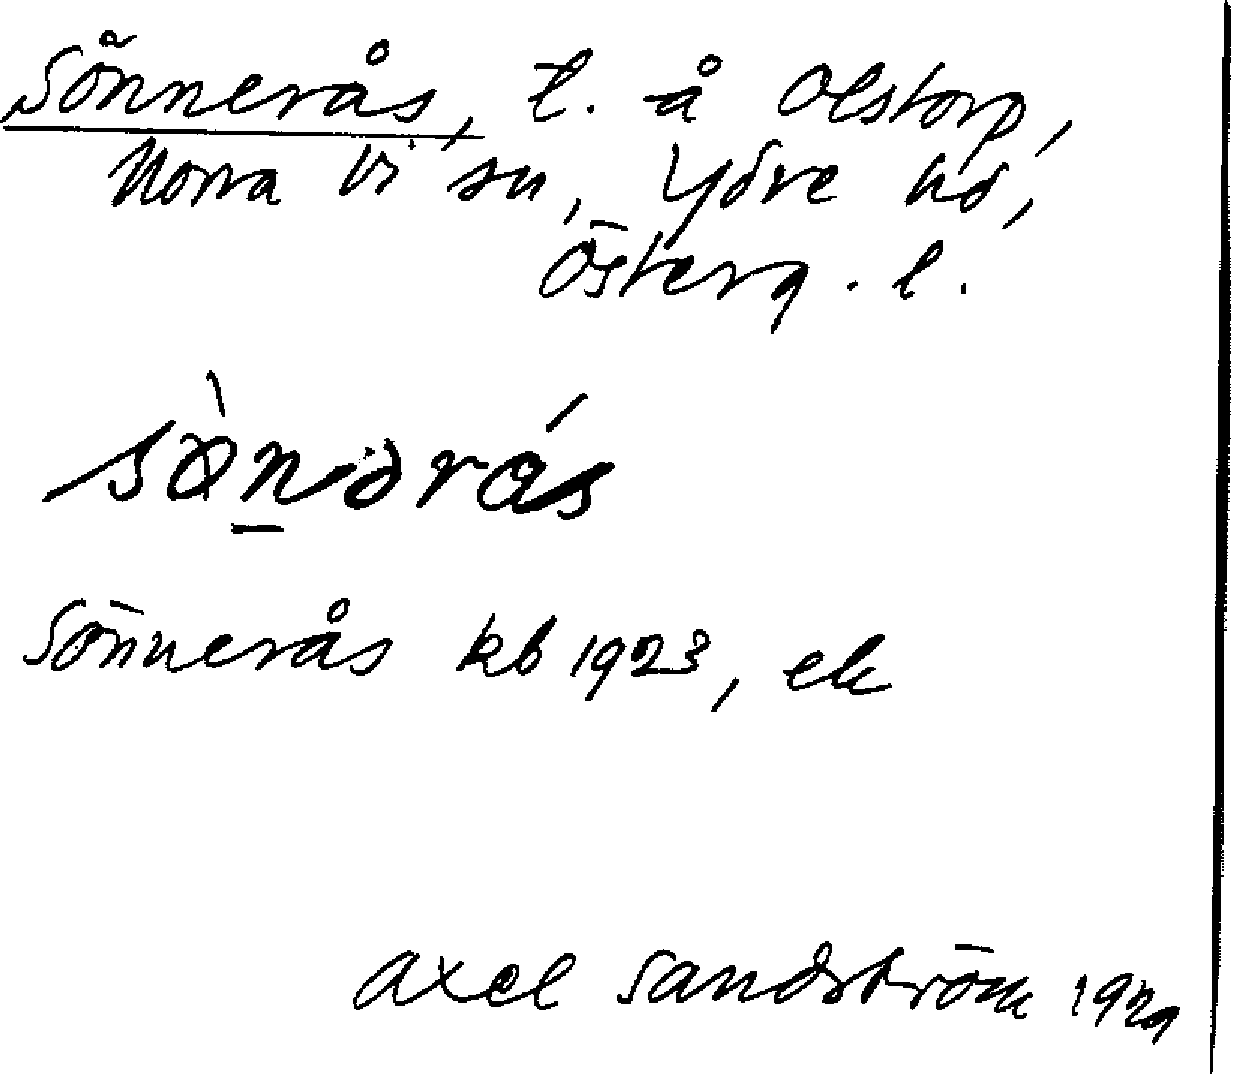 Sönnerås, t. å Olstorp,
Norra Vi sn, Ydre hd,
Österg. l.
sø̀nǝrás
Sönnerås kb 1923, ek
Axel Sandström 1929